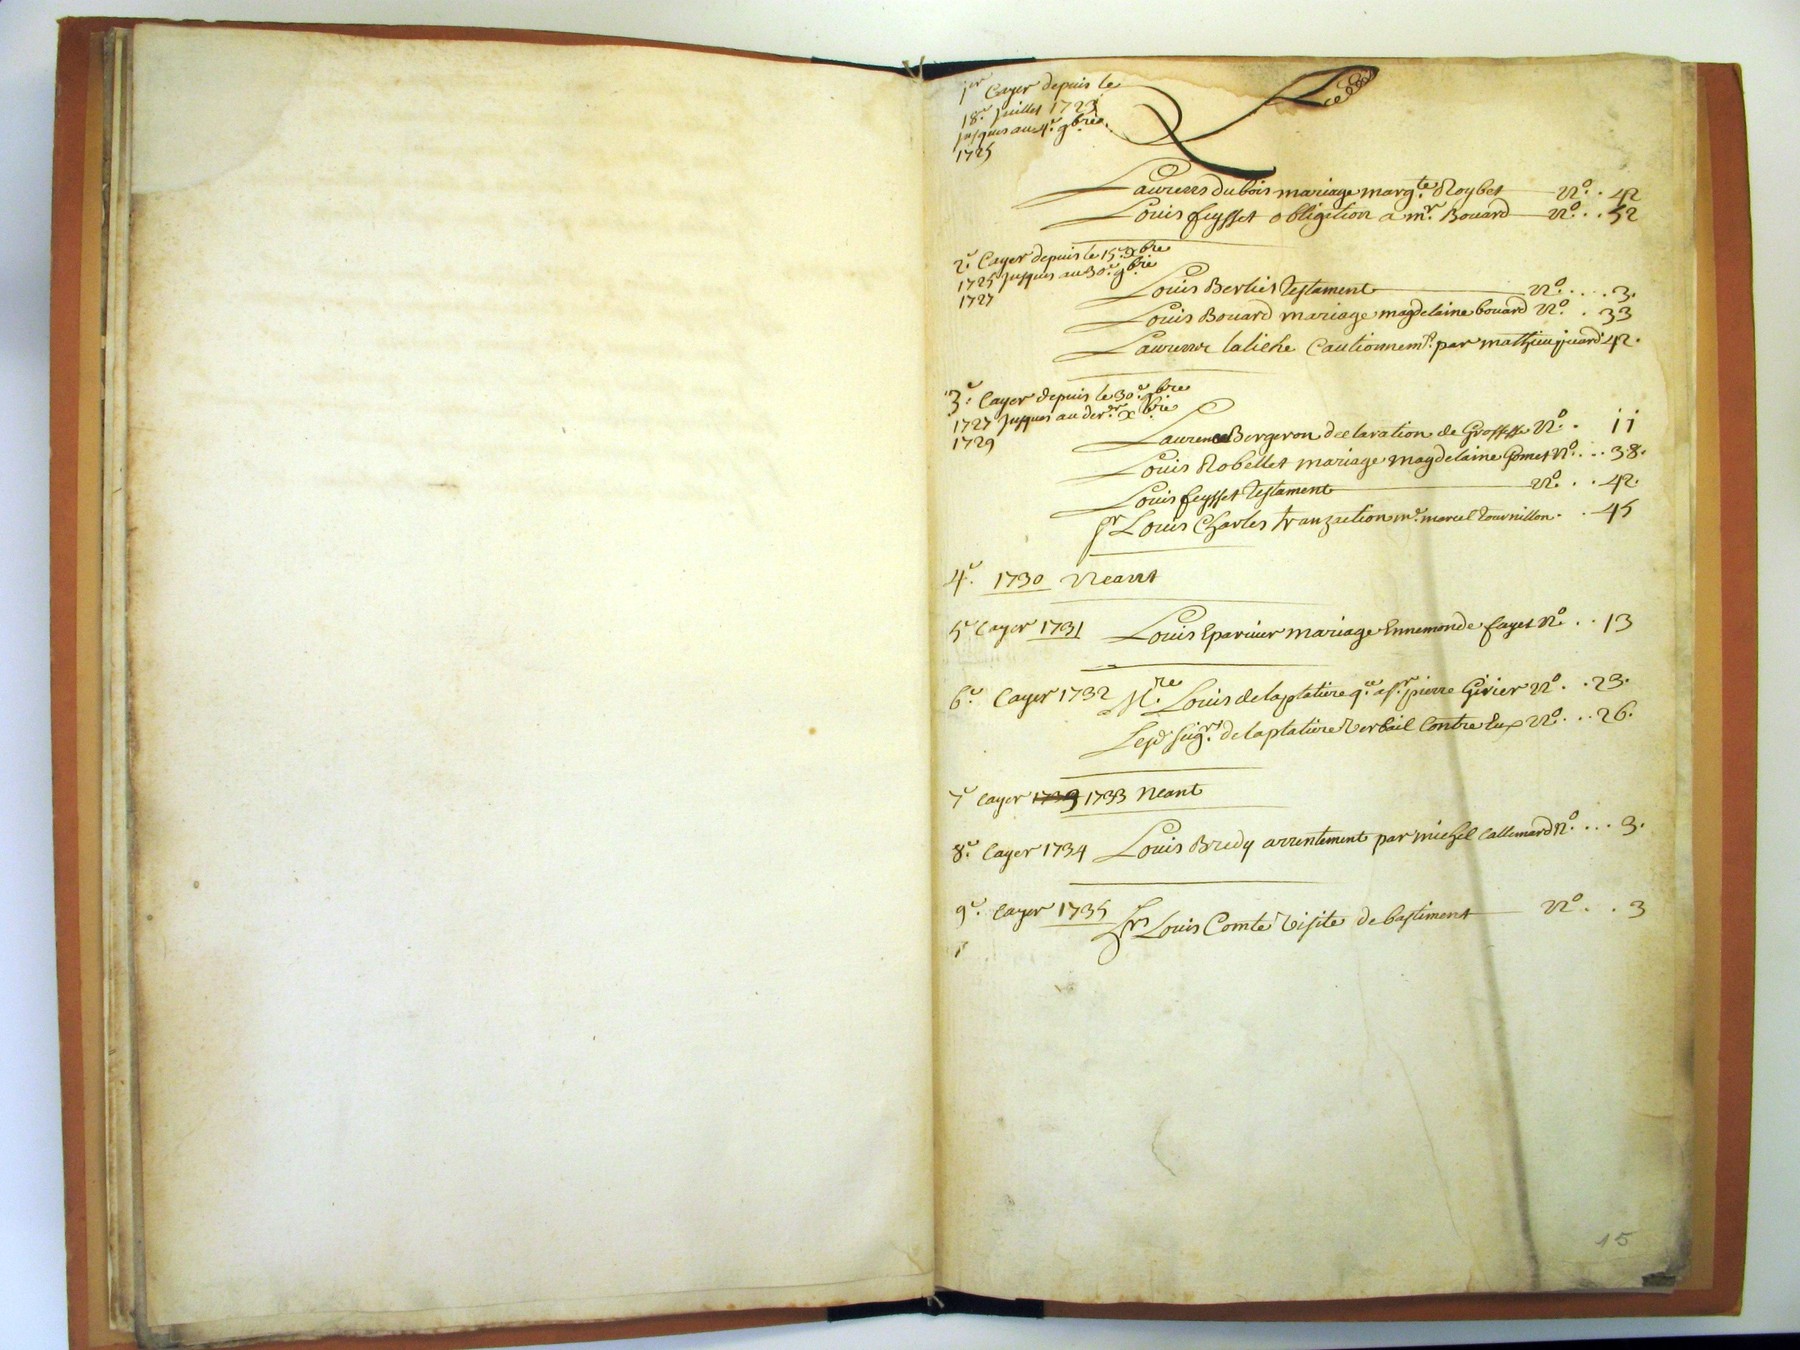 L
1er Cayer depuis le
18e Juillet 1723
Jusques au 4e 9bre
1725
Laurens dubois mariage margte Roybet No. . 42
Louis feysset obligation a mr Bouard No. . 52
2e Cayer depuis le 15e Xbre
1725 Jusques au 30e 9bre
1727
Louis Berliet Testament No. . . . 3.
Louis Bouard mariage magdelaine bouard No. . 33
Laurens laliche Cautionnemt par mathieu 42.
3e Cayer depuis le 30e 9bre
1727 Jusques au derer Xbre
1729
Laurence Bergeron declaration de Grossesse No. . 11
Louis Robellet mariage magdelaine Gomet No. . . 38.
Louis feysset Testament No. . . 42.
sr Louis Charles tranzaction me marcel tournillon. . 45
4e. 1730 Neant
5e Cayer 1731 Louis Eparvier mariage Ennemonde fayet No. . . 13
6e. Cayer 1732 Mre Louis de laplatiere qce a sr pierre Girier No. . 23.
Lesd seigr de laplatiere Verbail Contre Eux No. . . 26.
7e Cayer 1733 Neant
8e. Cayer 1734 Louis Bredy arrentement par michel callemard No. . . . 3.
9e. Cayer 1735 Sr Louis Comte Visite de bastiment No. . . 3
15